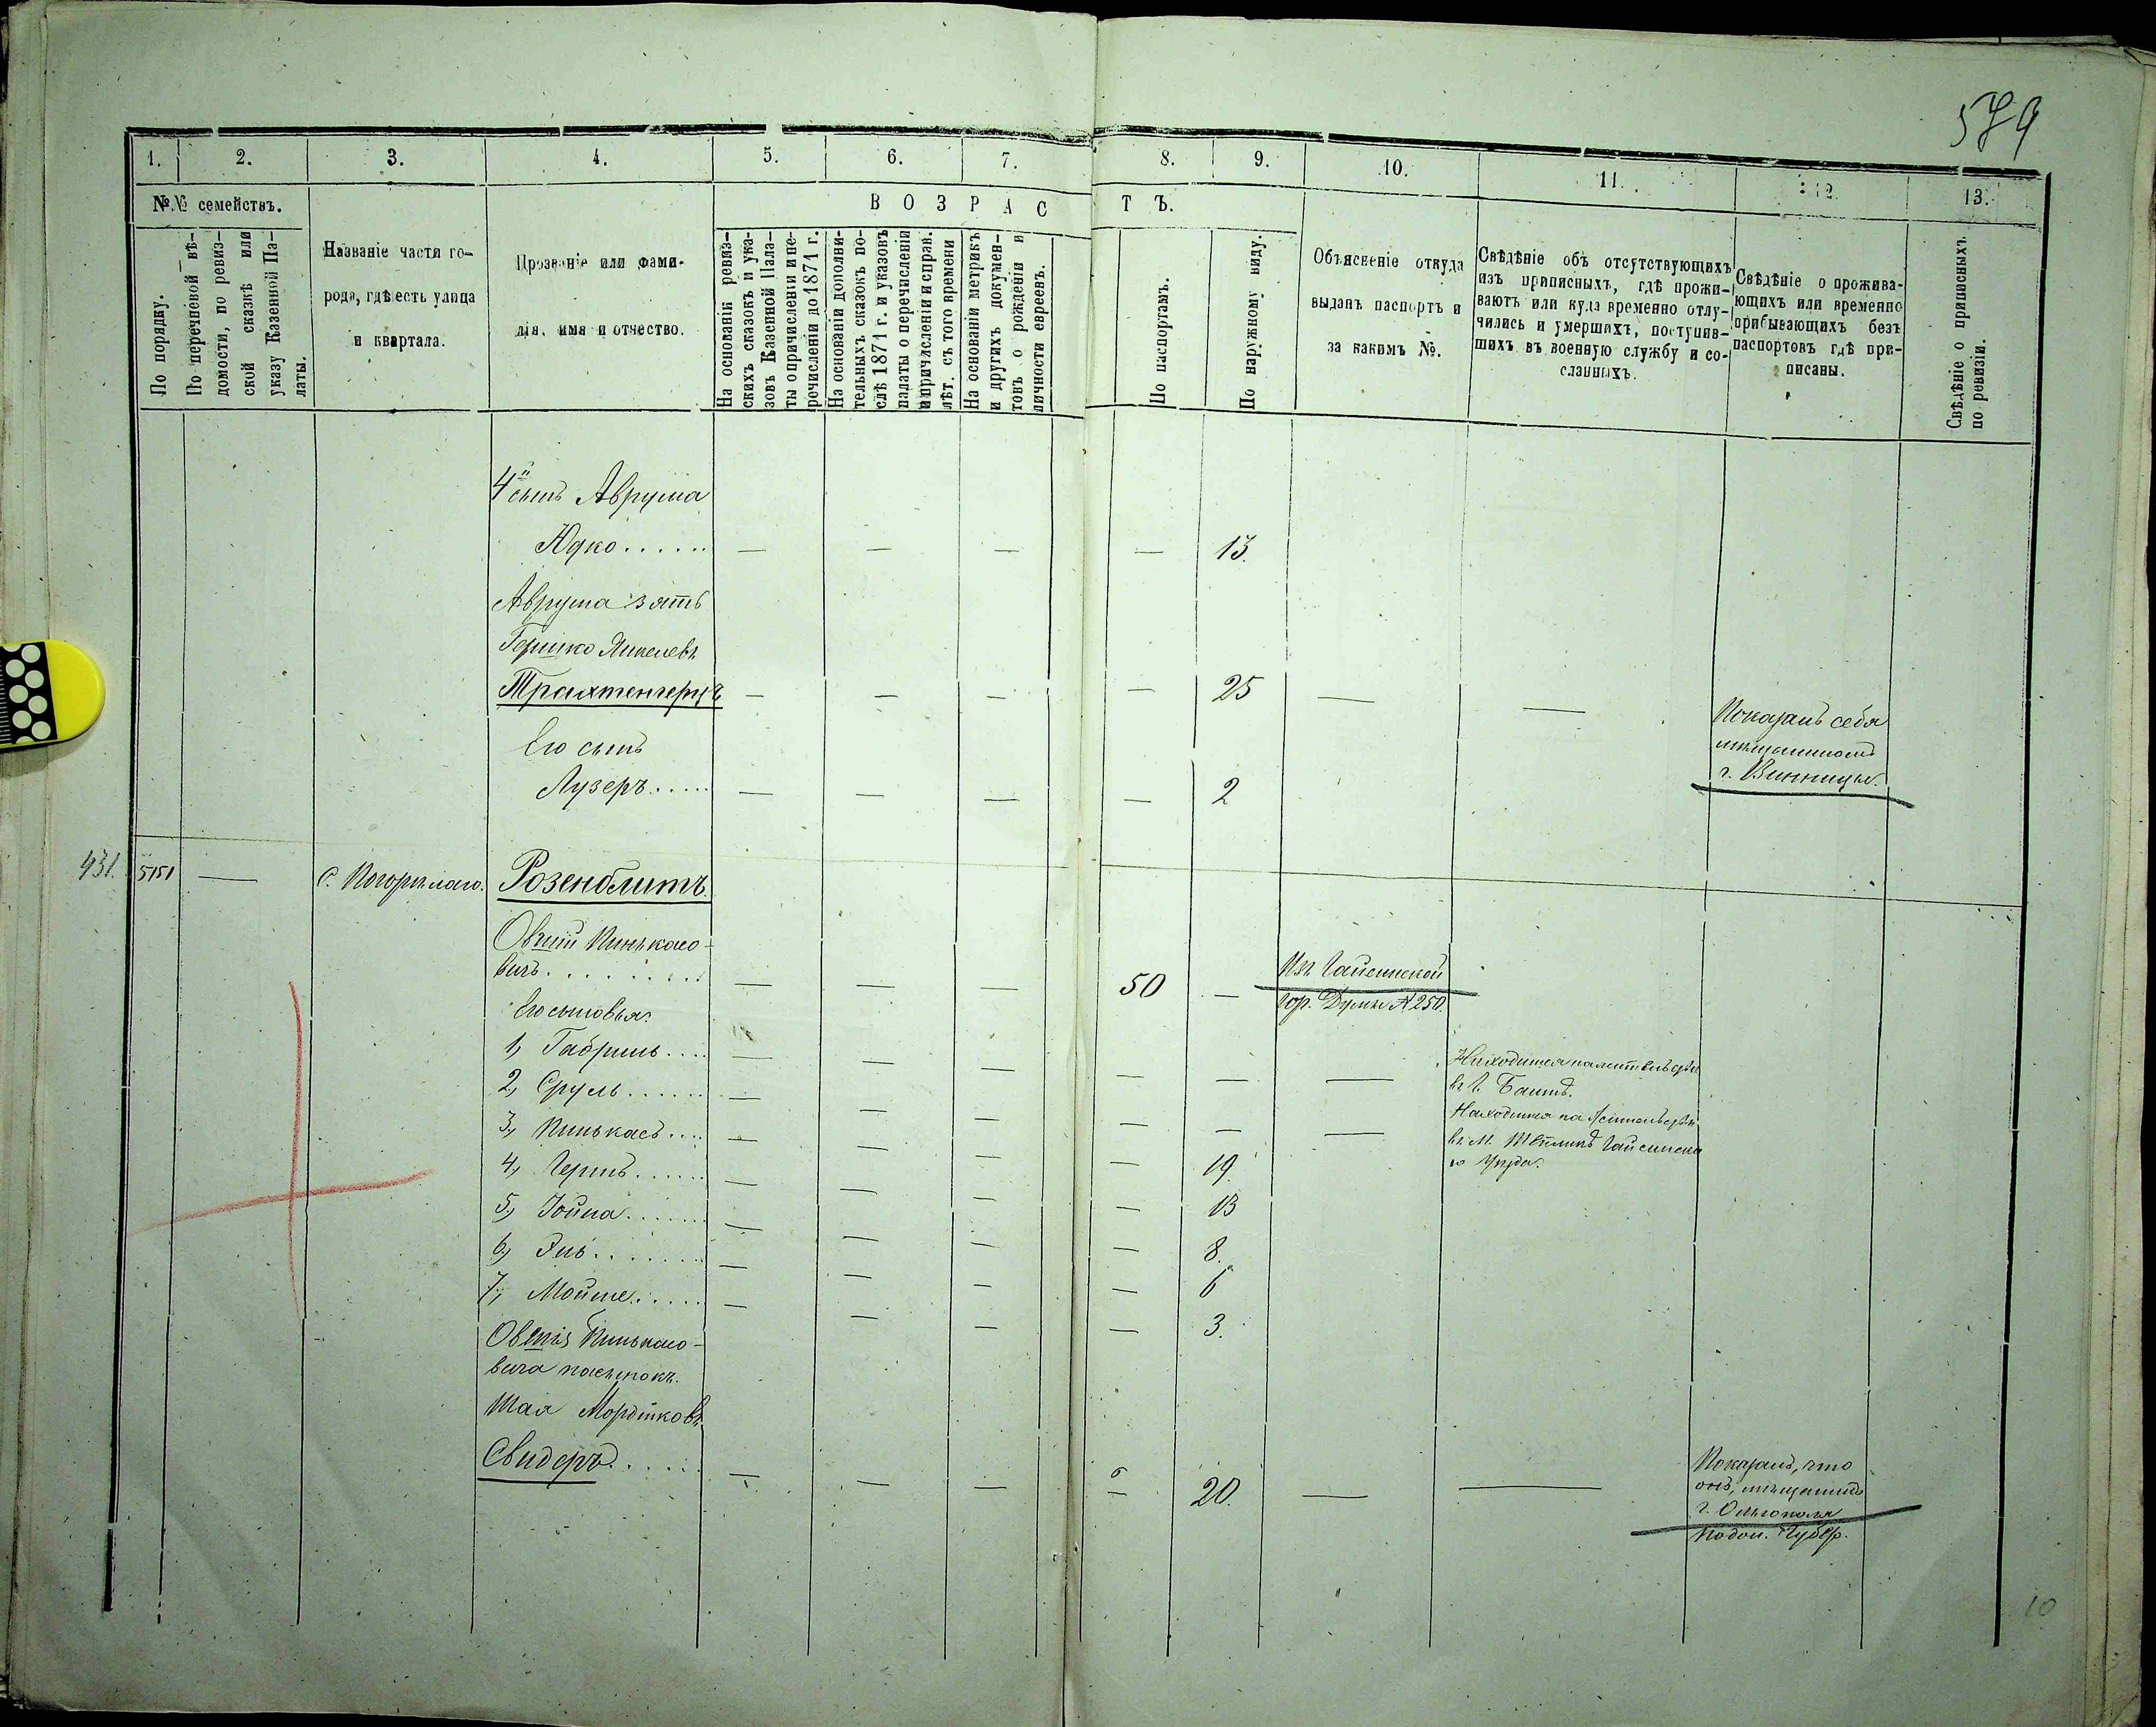 579
1. 2. 3. 4. 5. 6. 7. 8. 9. 10. 11. 12. 13.
№№ семействъ.
По порядку.
По перечневой вѣ-
домости, по ревиз-
ской сказкѣ или
указу Казенной Па-
латы.
Названіе части го-
рода, гдѣ есть улица
и квартала.
Прозваніе или фами-
лія, имя и отчество.
ВОЗРАСТЪ.
На основаніи ревиз-
скихъ сказокъ и ука-
зовъ Казенной Пала-
ты о причисленіи и пе-
речисленіи до 1871 г.
На основаніи дополни-
тельныхъ сказокъ по-
слѣ 1871 г. и указовъ
палаты о перечисленіи
и причисленіи и исправ.
лѣт. съ того времени
На основаніи метрикъ
и другихъ докумен-
товъ о рожденіи и
личности евреевъ.
По паспортамъ.
По наружному виду.
Объясненіе откуда
выданъ паспортъ и
за какимъ №.
Свѣдѣніе объ отсутствующихъ
изъ приписныхъ, гдѣ прожи-
ваютъ или куда временно отлу-
чились и умершихъ, поступив-
шихъ въ военную службу и со-
сланныхъ.
Свѣдѣніе о прожива-
ющихъ или временно
прибывающихъ безъ
паспортовъ гдѣ при-
писаны.
Свѣдѣніе о приписныхъ
по ревизіи.
4й сынъ Аврума
Юдко...... — — — — 13.
Аврума зять
Гершко
Трахтенгерцъ — — — — 25 — —
Показалъ себя
мѣщаниномъ
г. Винницы.
Его сынъ
Лузеръ..... — — — — 2
431. 5151 — с. Погорѣлаго. Розенблитъ.
Овшій Пинькасо-
вичъ......... — — — 50 —
Изъ Гайсинской
Гор. Думы № 250.
Его сыновья:
1, Габриль.... — — — — — —
Находится на жительствѣ
въ г. Балтѣ.
2, Сруль...... — — — — — —
Находится на жительствѣ
въ м. Тепликѣ Гайсинска
го Уѣзда.
3, Пинькасъ.... — — — — 19.
4, Гершъ...... — — — — 13
5, Іойна....... — — — — 8.
6, Эль........ — — — — 6
7, Мойше..... — — — — 3.
Овшія Пинькасо-
вича пасынокъ.
Шая Мордковъ
Свидеръ..... — — — — 20. — —
Показалъ, что
онъ, мѣщанинъ
г. Ольгополя
Подол. Губер.
10